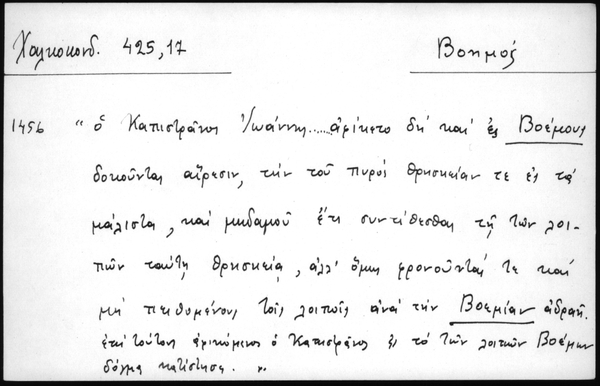 Χαλκοκονδ. 425,17
Βοημός
1456 "ὁ Καπιστρᾶνος Ἰωάννης.....ἀφίκετο δὴ καὶ ἐς Βοέμους
δοκοῦντας αἵρεσιν, τὴν τοῦ πυρός θρησκείαν τε ἐς τὰ
μάλιστα, καὶ μηδαμοῦ ἔτι συντίθεσθαι τῇ τῶν λοι-
πῶν ταύτῃ θρησκείᾳ, ἀλλ' ὅμως φρονοῦντάς τε καὶ
μὴ πειθομένους τοῖς λοιποῖς ἀνὰ τὴν Βοεμίαν ἀνδράσι.
ἐπὶ τούτους ἀφικόμενος ὁ Καπιστρᾶνος ἐς τὸ τῶν λοιπῶν Βοέμων
δόγμα κατέστησε. "